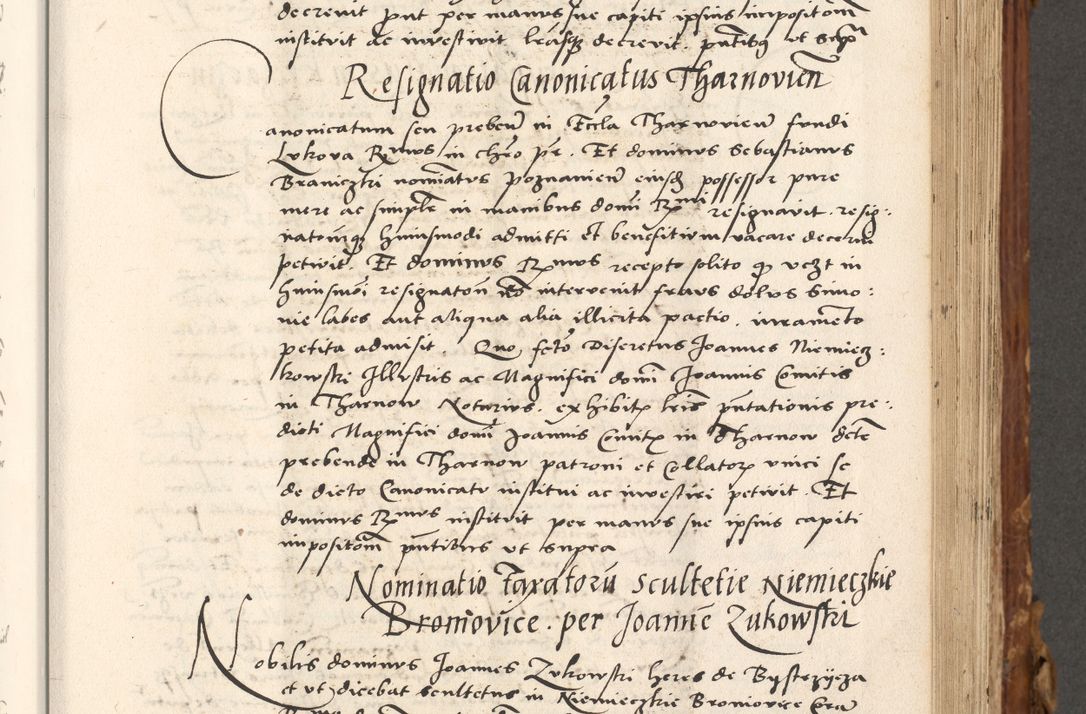 decrevit put per manus sue capiti ipsius impositom
instituit ac investivit lrasq decrevit. pntibus ut supra
Resignatio Canonicatus Tharnovien
Canonicatum seu preben in Eccla Tharnovien fundi
Lukova Rmus in chro pr. Et dominus Sebastianus
Braniczki nominatus Poznanien eiusd possessor pure
mere ac simple in manibus domi Rmi resignavit. resig:
natomq huiusmodi admitti et benefitium vacare decerni
petivit. Et dominus Rmus recepto solito q videlt in
huiusmoi resignatom non intervenit fraus dolus simo:
nie labes aut aliqua alia illicita pactio. iuramento
petita admisit. Quo fcto Discretus Joannes Niemiecz:
kowski Illustris ac Magnifici domi Joannis Comitis
in Tharnow Notarius. exhibitis lris pntationis pre:
dicti Magnifici domi Joannis Comitis in Tharnow dcte
prebende in Tharnow patroni et Collatoris unici se
de dicto Canonicatu institui ac investiri petivit. Et
dominus Rmus instituit per manus sue ipsius capiti
impositom pntibus ut supra
Nominatio taxatoru scultetie Niemieczkie
Bronovice. per Joanne Zukowski
Nobilis dominus Joannes Zukowski heres de Bystrzycza
et ut dicebat scultetus in Niemieczkie Bronovice Cora